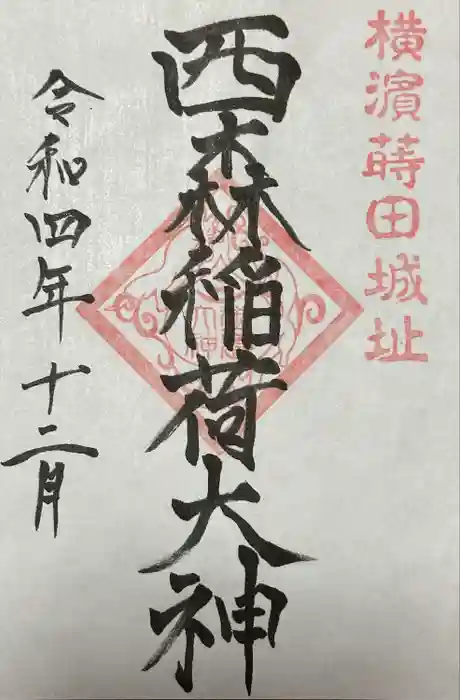 横濱蒔田城址
西森稲荷大神
令和四年十二月